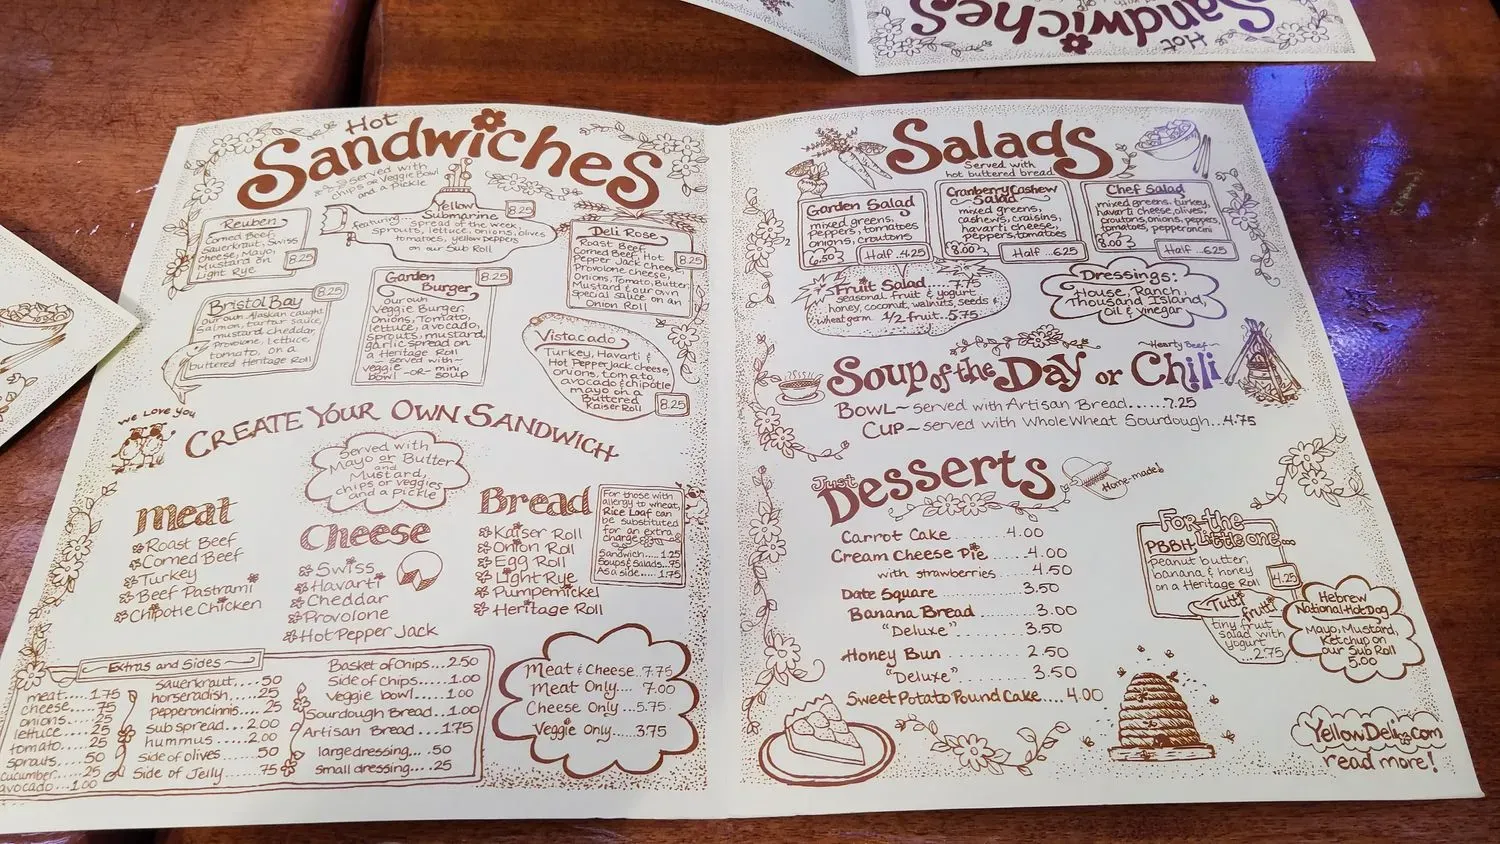 Hot
Sandwiches
served with
chips or Veggie Bowl
and a Pickle
Reuben
Corned Beef,
Sauerkraut, Swiss
Cheese, Mayo,
Mustard on
Light Rye
8.25
Yellow
Submarine
8.25
featuring... spread of the week,
sprouts, lettuce, onions, olives
tomatoes, yellow peppers
on our Sub Roll
Deli Rose
Roast Beef,
Corned Beef, Hot
Pepper Jack Cheese,
Provolone cheese,
Onions, Tomato, Butter,
Mustard & our own
special sauce on an
Onion Roll
8.25
Bristol Bay
8.25
our own Alaskan caught
Salmon, tartar sauce,
mustard, cheddar,
Provolone, lettuce,
tomato, on a
buttered Heritage Roll
Garden
Burger
8.25
our own
Veggie Burger,
Onions, Tomato,
lettuce, avocado,
sprouts, mustard,
garlic spread on
a Heritage Roll
served with
veggie -or- mini
bowl soup
Vistacado
Turkey, Havarti &
Hot Pepper Jack cheese,
onions, tomato,
avocado & chipotle
mayo on a
Buttered
Kaiser Roll
8.25
We Love You
Create Your Own Sandwich
Served with
Mayo or Butter
and
Mustard,
chips or veggies
and a pickle
Meat
Roast Beef
Corned Beef
Turkey
Beef Pastrami
Chipotle Chicken
Cheese
Swiss
Havarti
Cheddar
Provolone
Hot Pepper Jack
Bread
Kaiser Roll
Onion Roll
Egg Roll
Light Rye
Pumpernickel
Heritage Roll
For those with
allergy to wheat,
Rice Loaf can
be substituted
for an extra
charge
Sandwich.... 1.25
Soups & Salads...75
As a side..... 1.75
Extras and Sides
meat.....1.75
cheese.....75
onions.....25
lettuce.....25
tomato.....25
sprouts.....50
cucumber.....25
avocado...1.00
sauerkraut....50
horseradish....25
pepperoncinnis....25
sub spread....2.00
hummus.....2.00
Side of olives.....50
Side of Jelly.....75
Basket of Chips...2.50
Side of chips.....1.00
Veggie bowl....1.00
Sourdough Bread...1.00
Artisan Bread....1.75
large dressing....50
small dressing....25
Meat & Cheese..7.75
Meat Only.... 7.00
Cheese Only...5.75
Veggie Only....3.75
Salads
Served with
hot buttered bread
Garden Salad
mixed greens,
peppers, tomatoes
onions, croutons
6.50
Half..4.25
Cranberry Cashew
Salad
mixed greens,
cashews, craisins,
havarti cheese,
peppers, tomatoes
8.00
Half ...6.25
Chef Salad
mixed greens, turkey,
havarti cheese, olives,
croutons, onions, peppers
tomatoes, pepperoncini
8.00
Half ...6.25
Fruit Salad.....7.75
seasonal fruit & yogurt
honey, coconut, walnuts, seeds &
wheat germ 1/2 fruit..5.75
Dressings:
House, Ranch,
Thousand Island,
Oil & vinegar
Soup of the Day or Chili
~Hearty Beef~
Bowl~ served with Artisan Bread.......7.25
Cup~ served with Whole Wheat Sourdough...4.75
Just
Desserts
Home-made!
Carrot Cake........4.00
Cream Cheese Pie.......4.00
with strawberries......4.50
Date Square........3.50
Banana Bread........3.00
"Deluxe".........3.50
Honey Bun........2.50
"Deluxe".........3.50
Sweet Potato Pound Cake....4.00
For the
little one...
PBBH
peanut butter,
banana & honey
on a Heritage Roll
4.25
Tutti
frutti
tiny fruit
salad with
yogurt
2.75
Hebrew
National Hot Dog
Mayo, Mustard,
Ketchup on
our Sub Roll
5.00
YellowDeli.com
read more!
Hot
Sandwiches